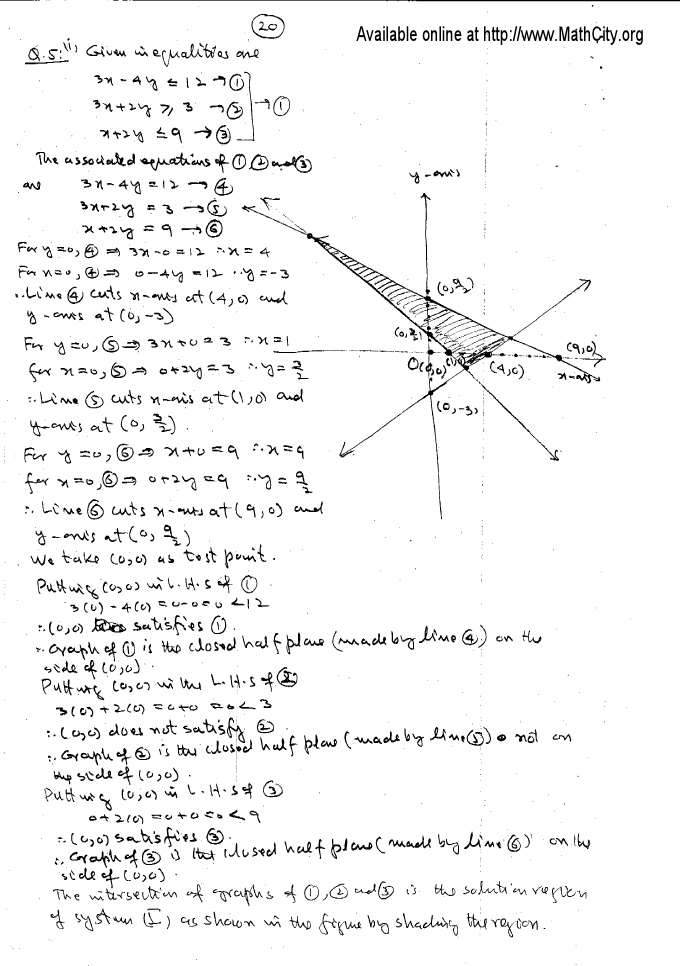 20
Available online at http://www.MathCity.org
Q.5:(i) Given inequalities are
3x-4y ≤ 12 → ①
3x+2y ≥ 3 → ② → ①
x+2y ≤ 9 → ③
The associated equations of ①, ② and ③
are 3x-4y = 12 → ④
3x+2y = 3 → ⑤
x+2y = 9 → ⑥
For y=0, ④ ⇒ 3x-0=12 ∴ x=4
For x=0, ④ ⇒ 0-4y=12 ∴ y=-3
∴ Line ④ cuts x-axis at (4,0) and
y-axis at (0,-3)
For y=0, ⑤ ⇒ 3x+0=3 ∴ x=1
for x=0, ⑤ ⇒ 0+2y=3 ∴ y=3/2
∴ Line ⑤ cuts x-axis at (1,0) and
y-axis at (0, 3/2).
For y=0, ⑥ ⇒ x+0=9 ∴ x=9
for x=0, ⑥ ⇒ 0+2y=9 ∴ y=9/2
∴ Line ⑥ cuts x-axis at (9,0) and
y-axis at (0, 9/2)
We take (0,0) as test point.
Putting (0,0) in L.H.S of ①
3(0)-4(0)=0-0=0<12
∴ (0,0) satisfies ①.
∴ Graph of ① is the closed half plane (made by line ④) on the
side of (0,0).
Putting (0,0) in the L.H.S of ②
3(0)+2(0)=0+0=0<3
∴ (0,0) does not satisfy ②
∴ Graph of ② is the closed half plane (made by line ⑤) not on
the side of (0,0).
Putting (0,0) in L.H.S of ③
0+2(0)=0+0=0<9
∴ (0,0) satisfies ③.
∴ Graph of ③ is the closed half plane (made by line ⑥) on the
side of (0,0).
The intersection of graphs of ①, ② and ③ is the solution region
of system (I) as shown in the figure by shading the region.
y-axis
(0, 9/2)
(0, 3/2)
O(0,0)
(1,0)
(4,0)
(9,0)
x-axis
(0,-3)